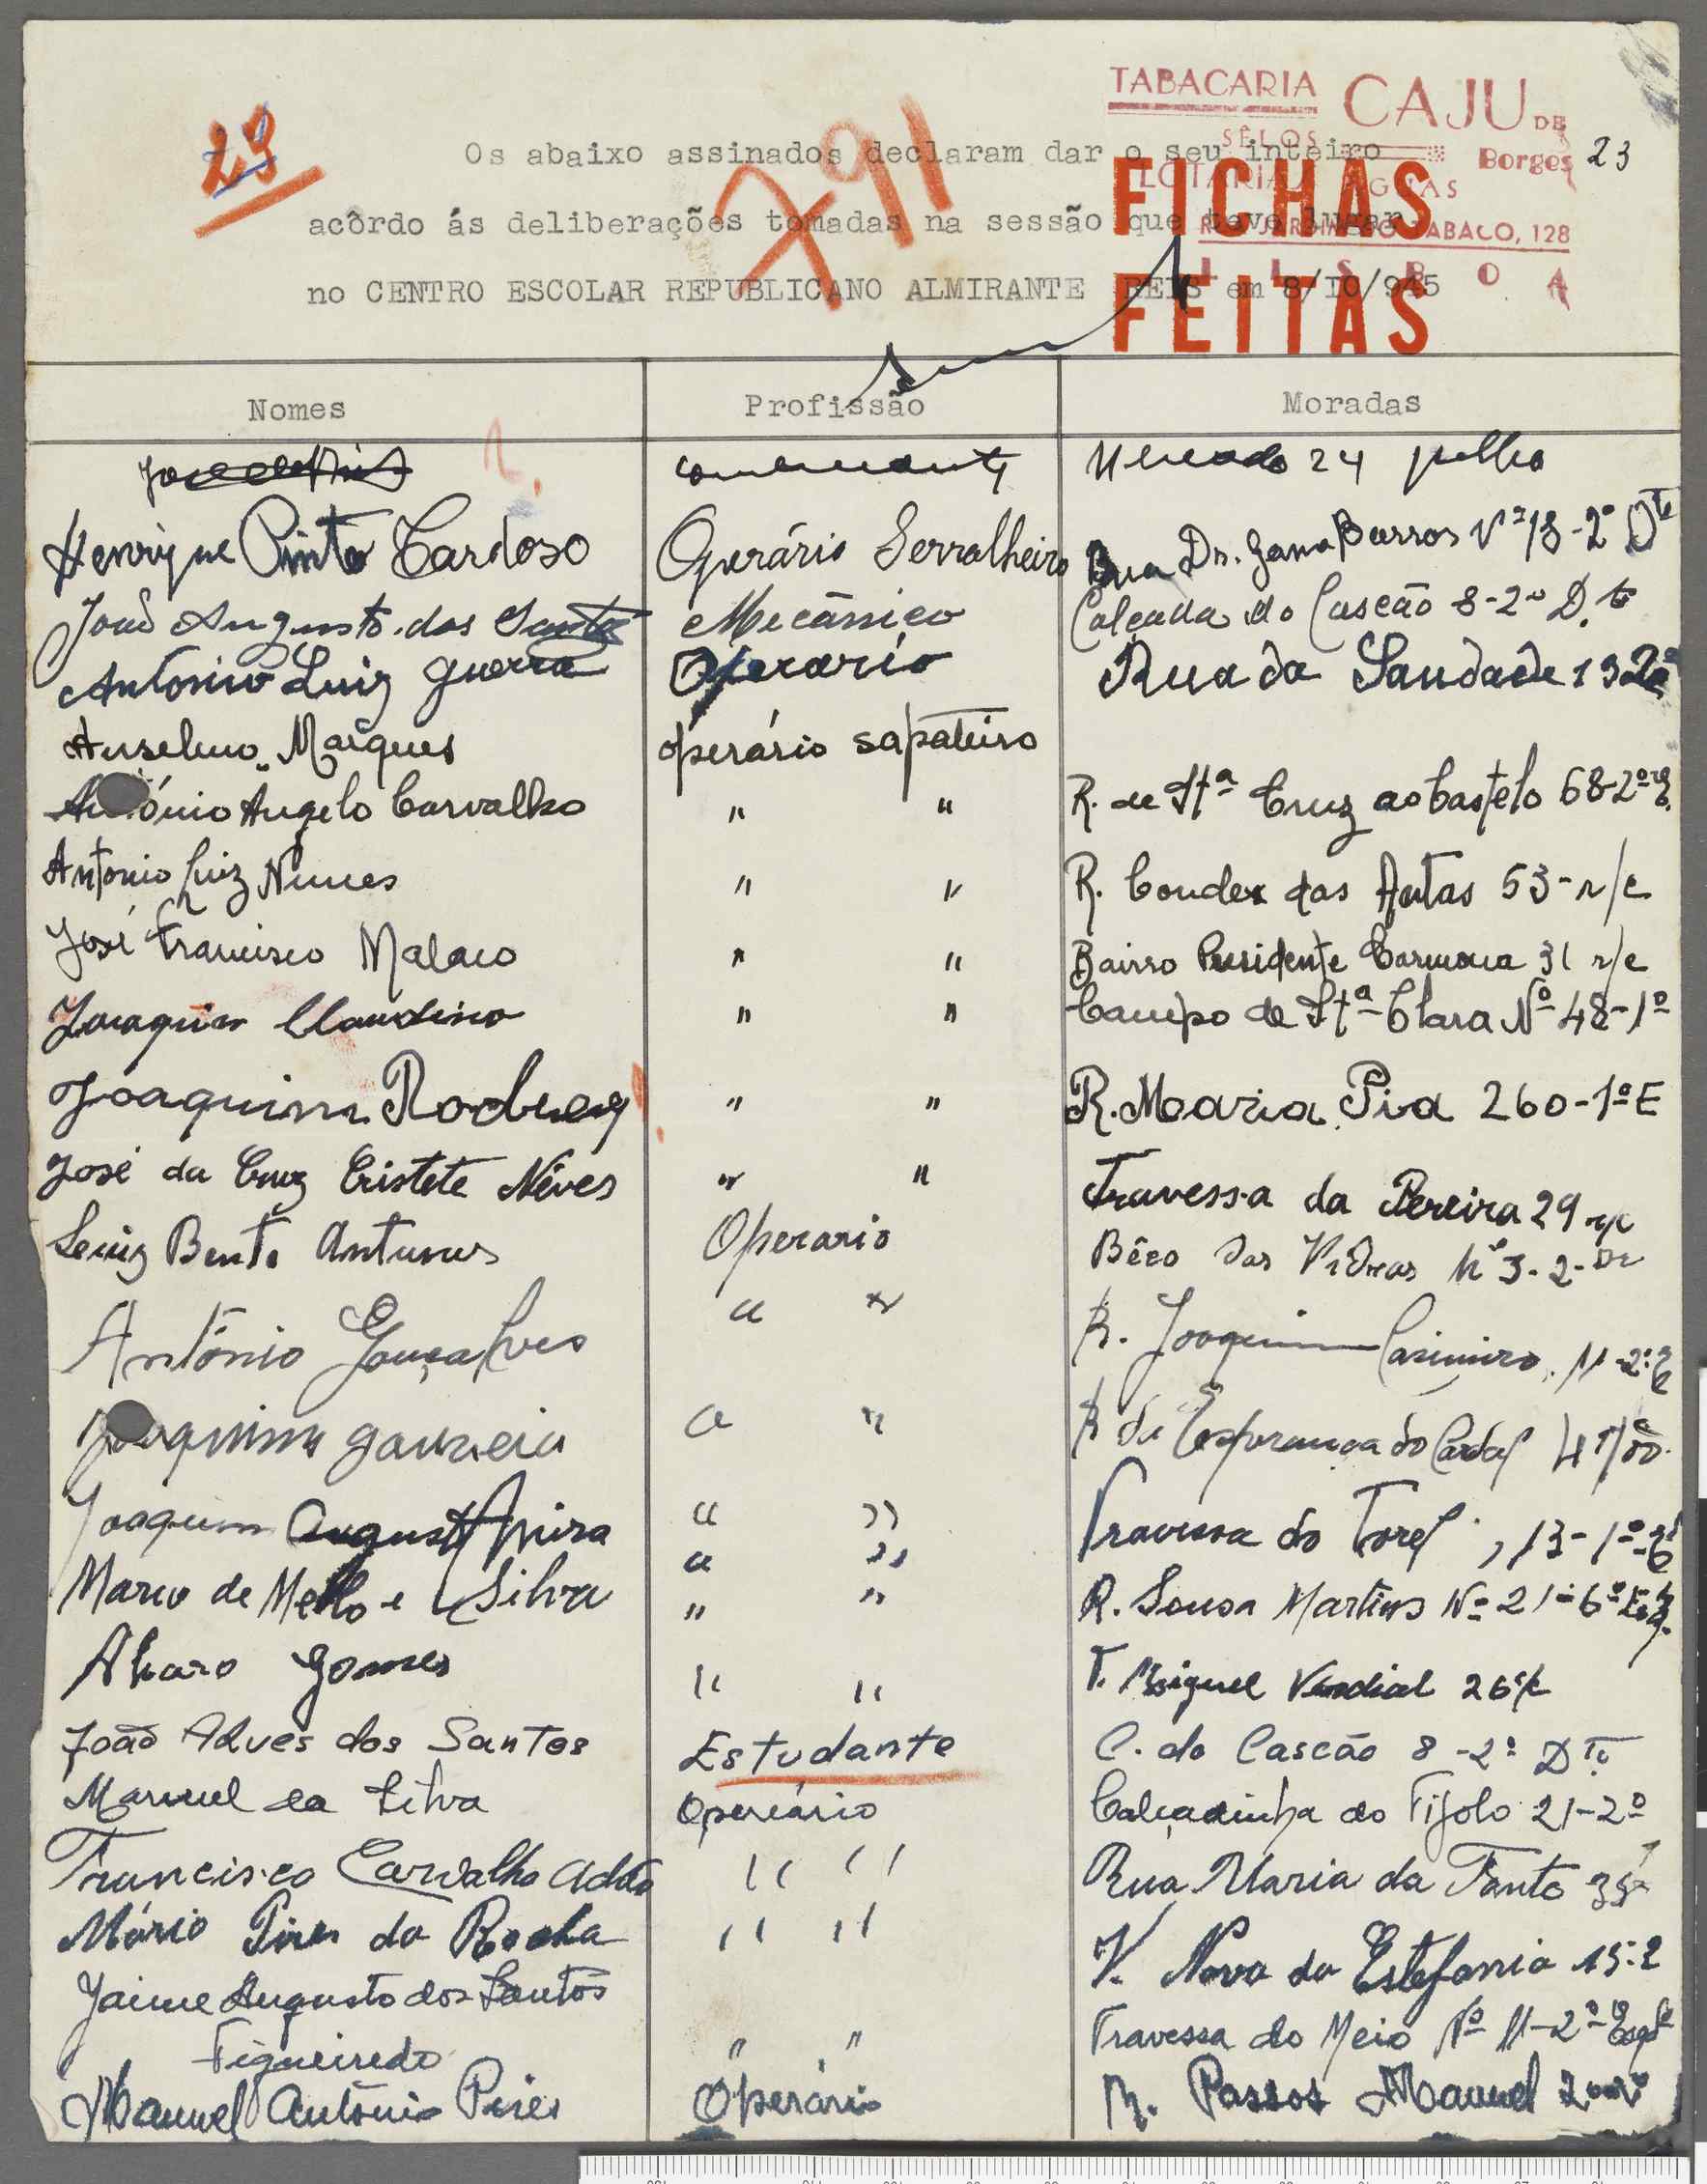 TABACARIA CAJU DE
SÊLOS Borges 23
29
X91
Os abaixo assinados declaram dar o seu inteiro
LOTARIA
FICHAS
acôrdo ás deliberações tomadas na sessão que teve lugar
TABACO, 128
LISBOA
no CENTRO ESCOLAR REPUBLICANO ALMIRANTE REIS em 8/IO/945
FEITAS
Nomes Profissão Moradas
Mercado 24 julho
Henrique Pinto Cardoso Operário Serralheiro Rua Dr. Gama Barros Nº 13-2º Dte
João Augusto dos Santos Mecânico Calçada do Cascão 8-2º D.to
Antonino Luiz Guerra Operario Rua da Saudade 13 2º
Anselmo Marques operário sapateiro
António Angelo Carvalho " " R. de Stª Cruz ao Castelo 68-2º
Antonio Luiz Nunes " " R. Conde das Antas 53-r/c
José Francisco Malaco " " Bairro Presidente Carmona 31 r/c
Joaquim Claudino " " Campo de Stª Clara Nº 48-1º
Joaquim " " R. Maria Pia 260-1º E
José da Cruz Cristete Nêves " " Travessa da Pereira 29 r/c
Luiz Bento Antunes Operario Bêco das Nº 3-2-
António Gonçalves " " R. Joaquim Casimiro, 11-2º
Joaquim " " R da Esperança do Cardal
Joaquim August " " Travessa do Torel, 13-1º
Mario de Mello e Silva " " R. Sousa Martins Nº 21-6º Esq.
Alvaro Gomes " " T. Miguel 26
João Alves dos Santos Estudante C. do Cascão 8-2º DTo
Manuel da Silva Operário Calçadinha do Tijolo 21-2º
Francisco Carvalho Adão " " Rua Maria da Fonte
Mário Pires da Rocha " " V. Nova da Estefania 15-2
Jaime Augusto dos Santos
Figueiredo " " Travessa do Meio Nº 11-2º
Manuel António Pires Operário R. Passos Manuel